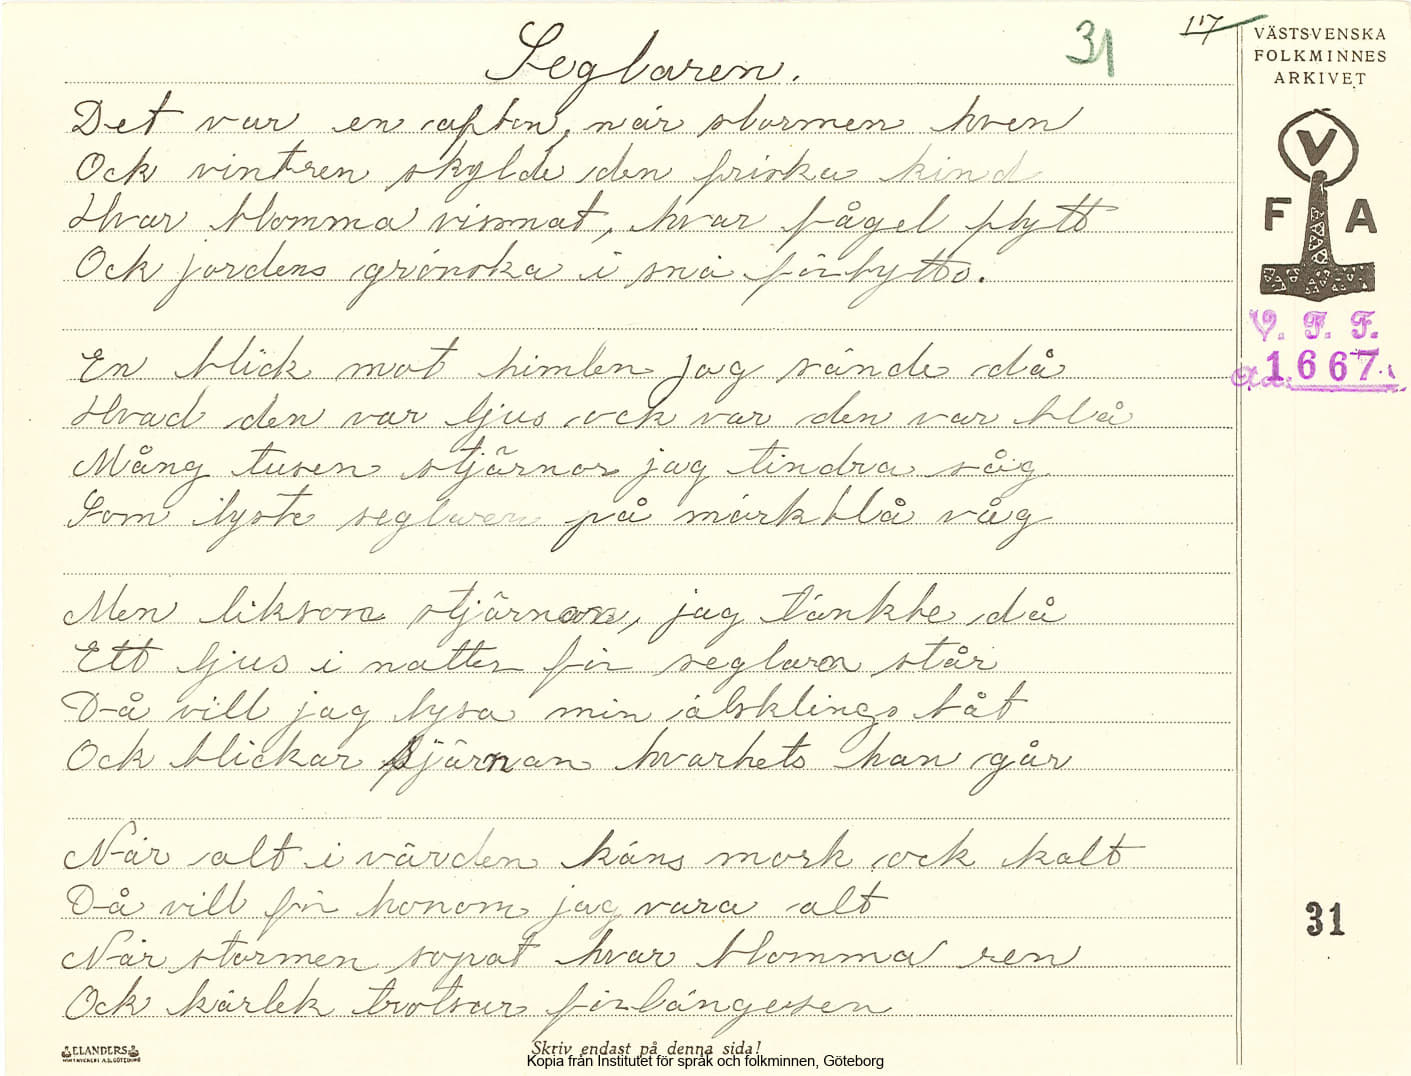 Seglaren.
31
117
VÄSTSVENSKA
FOLKMINNES
ARKIVET
V
F A
V. F. F.
1667
Det var en afton, när stormen hven
Ock vintren skylde den friska kind
Hvar blomma vissnat, hvar fågel flytt
Ock jordens grönska i snö förbytts.
En blick mot himlen jag sände då
Hvad den var ljus ock var den var blå
Mång tusen stjärnor jag tindra såg
Som lyste seglaren på mörkblå våg
Men liksom stjärnan, jag tänkte då
Ett ljus i natten för seglarn står
Då vill jag lysa min älsklings båt
Ock blickar stjärnan hvarhets han går
När alt i värden käns mork ock kalt
Då vill för honom jag vara alt
När stormen sopat hvar blomma ren
Ock kärlek trotsar förlängesen
31
ELANDERS
Skriv endast på denna sida!
Kopia från Institutet för språk och folkminnen, Göteborg